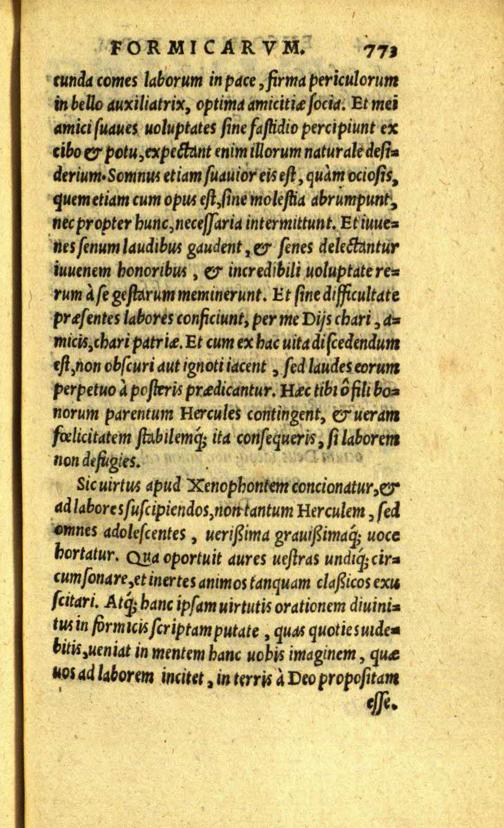 FORMICARVM. 773
cunda comes laborum in pace, firma periculorum
in bello auxiliatrix, optima amicitiæ socia. Et mei
amici suaues uoluptates sine fastidio percipiunt ex
cibo & potu, expectant enim illorum naturale desi=
derium. Somnus etiam suauior eis est, quàm ociosis,
quem etiam cum opus est, sine molestia abrumpunt,
nec propter hunc, necessaria intermittunt. Et iuue=
nes senum laudibus gaudent, & senes delectantur
iuuenem honoribus, & incredibili uoluptate re=
rum à se gestarum meminerunt. Et sine difficultate
præsentes labores conficiunt, per me Dijs chari, a=
micis, chari patriæ. Et cum ex hac uita discedendum
est, non obscuri aut ignoti iacent, sed laudes eorum
perpetuo à posteris prædicantur. Hæc tibi ô fili bo=
norum parentum Hercules contingent, & ueram
fœlicitatem stabilemq́; ita consequeris, si laborem
non defugies.
Sic uirtus apud Xenophontem concionatur, &
ad labores suscipiendos, non tantum Herculem, sed
omnes adolescentes, uerißima grauißimaq́; uoce
hortatur. Qua oportuit aures uestras undiq; cir=
cumsonare, et inertes animos tanquam claßicos exu
scitari. Atq́; hanc ipsam uirtutis orationem diuini=
tus in formicis scriptam putate, quas quoties uide=
bitis, ueniat in mentem hanc uobis imaginem, quæ
uos ad laborem incitet, in terris à Deo propositam
esse.